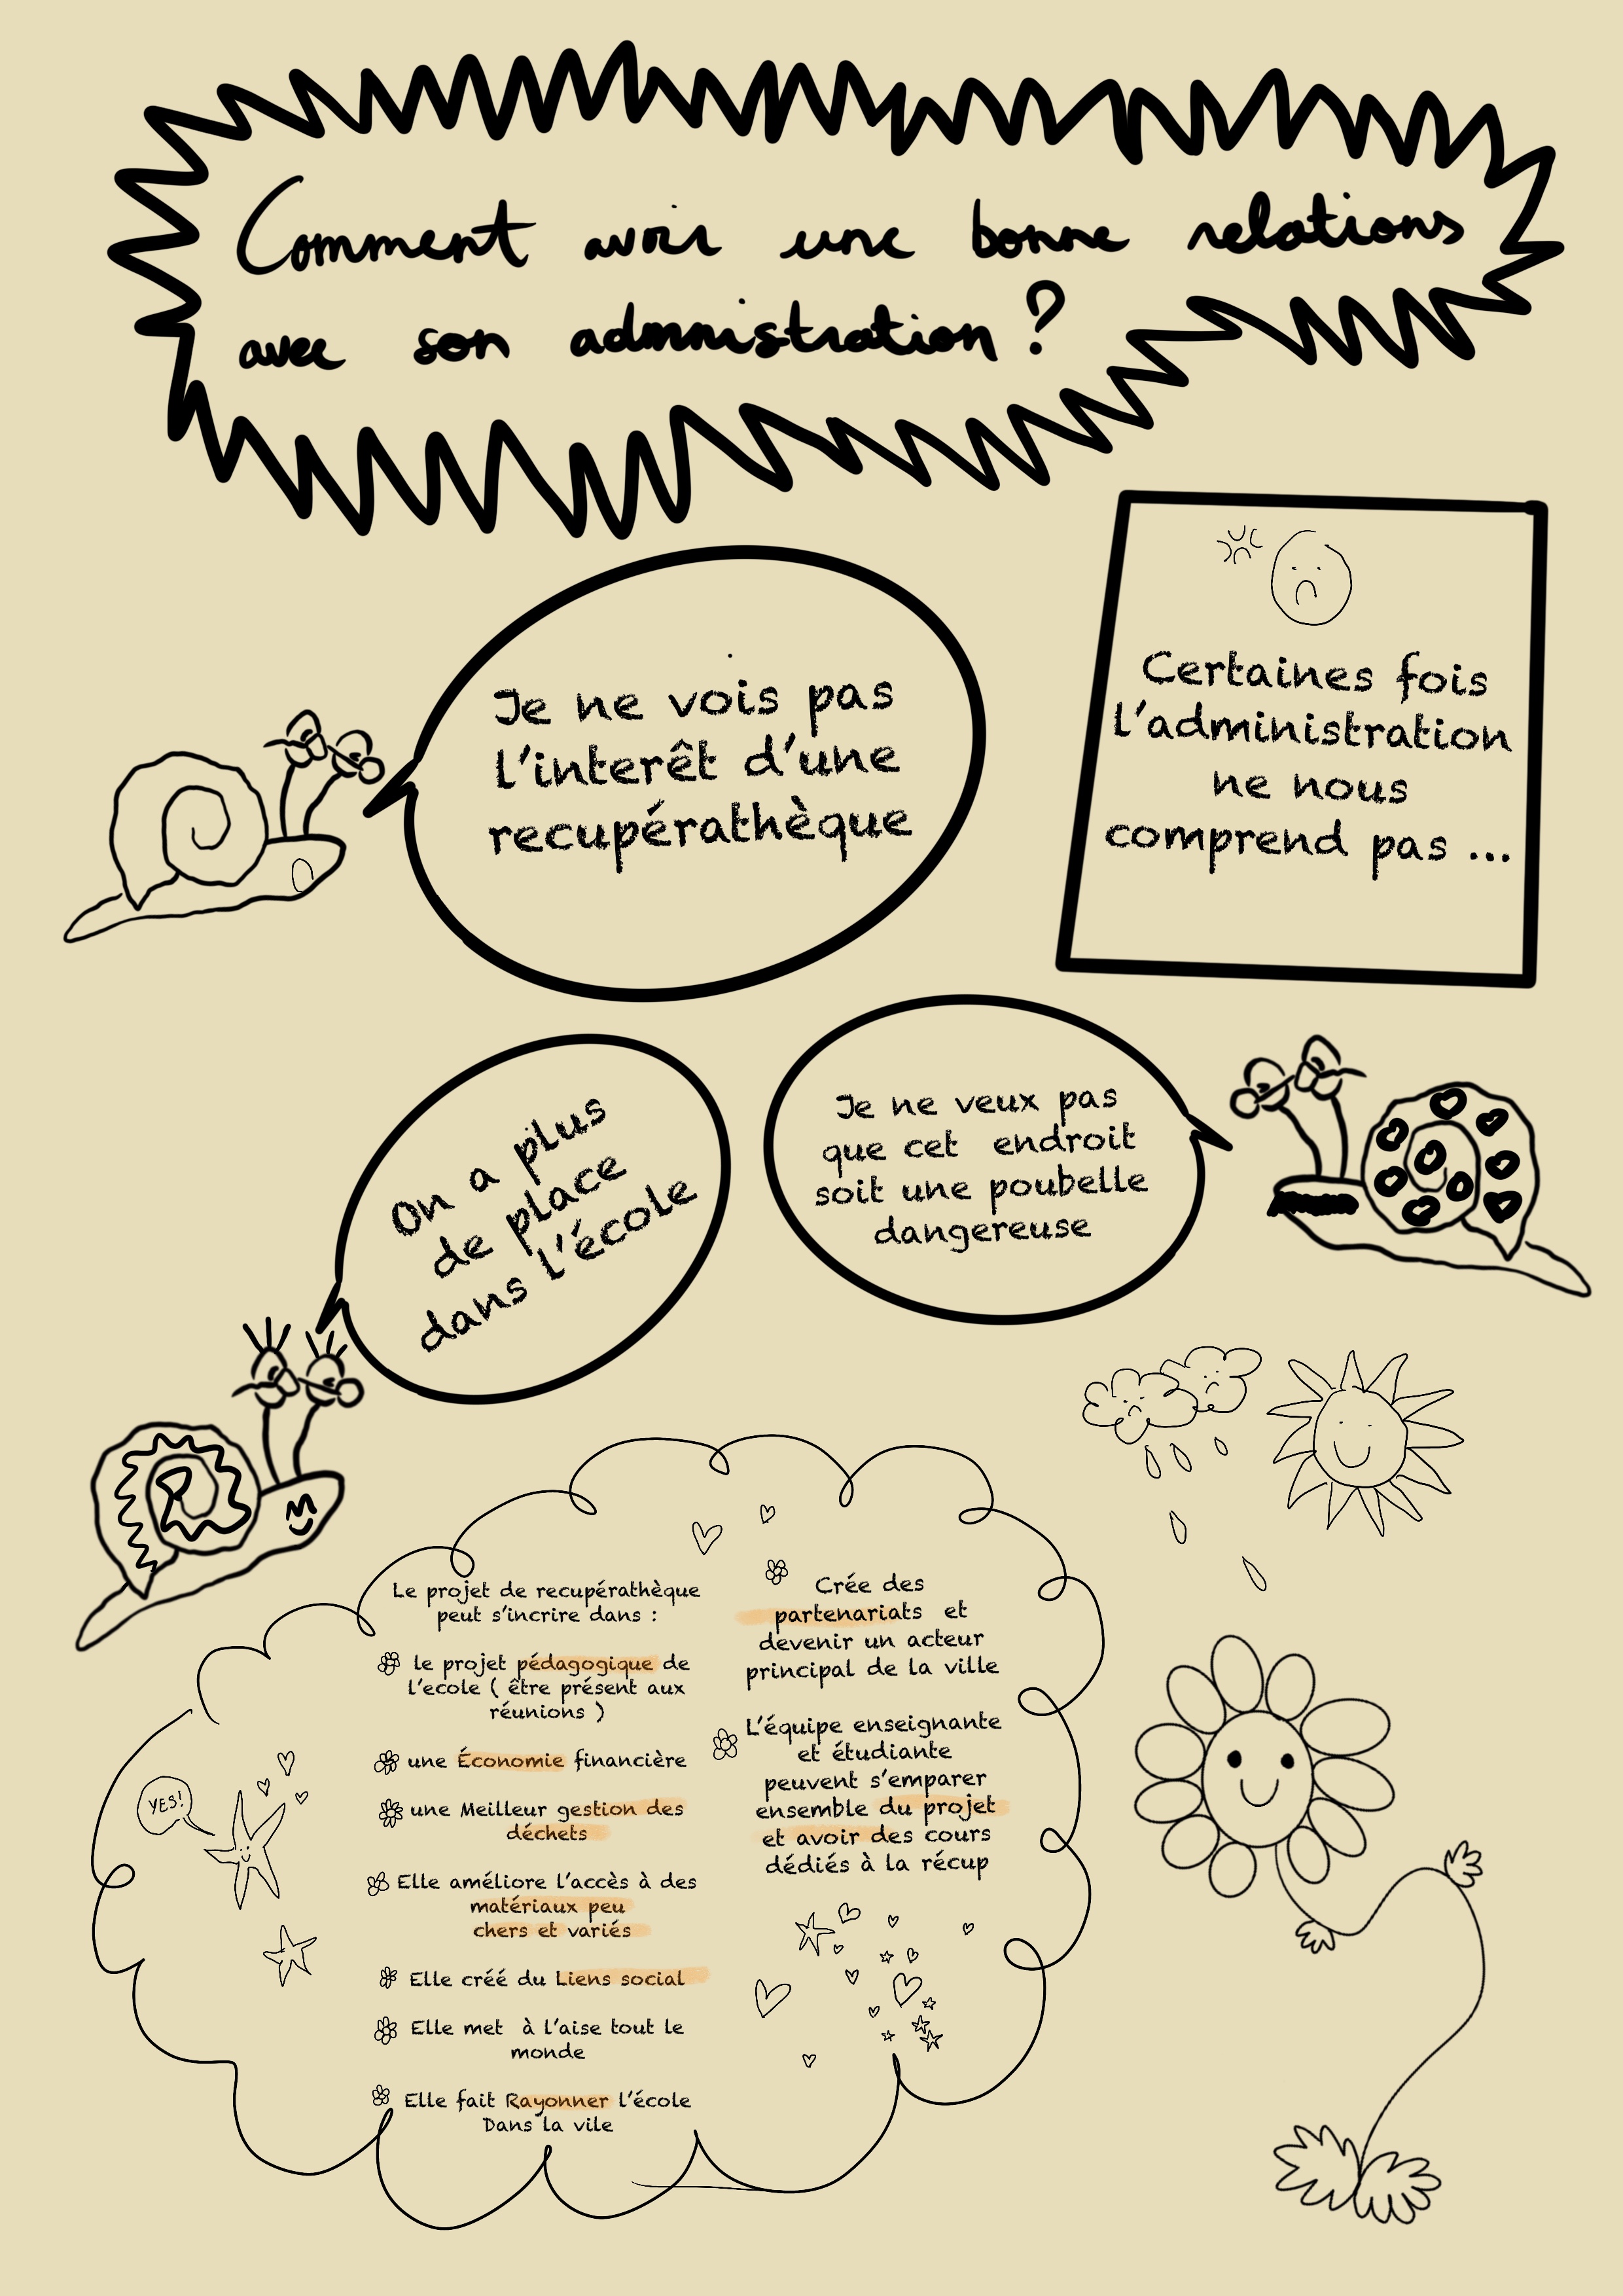 Comment avoir une bonne relations
avec son administration ?
Certaines fois
l'administration
ne nous
comprend pas ...
Je ne vois pas
l'interêt d'une
recupérathèque
Je ne veux pas
que cet endroit
soit une poubelle
dangereuse
On a plus
de place
dans l'école
Le projet de recupérathèque
peut s'incrire dans :
le projet pédagogique de
l'ecole ( être présent aux
réunions )
une Économie financière
une Meilleur gestion des
déchets
Elle améliore l'accès à des
matériaux peu
chers et variés
Elle créé du Liens social
Elle met à l'aise tout le
monde
Elle fait Rayonner l'école
Dans la vile
Crée des
partenariats et
devenir un acteur
principal de la ville
L'équipe enseignante
et étudiante
peuvent s'emparer
ensemble du projet
et avoir des cours
dédiés à la récup
YES!